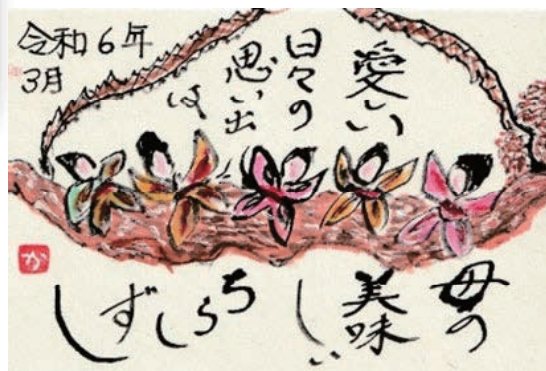 令和6年
3月
愛い
日々の
思い出
は
母の
美味
しい
ちらし
ずし
か